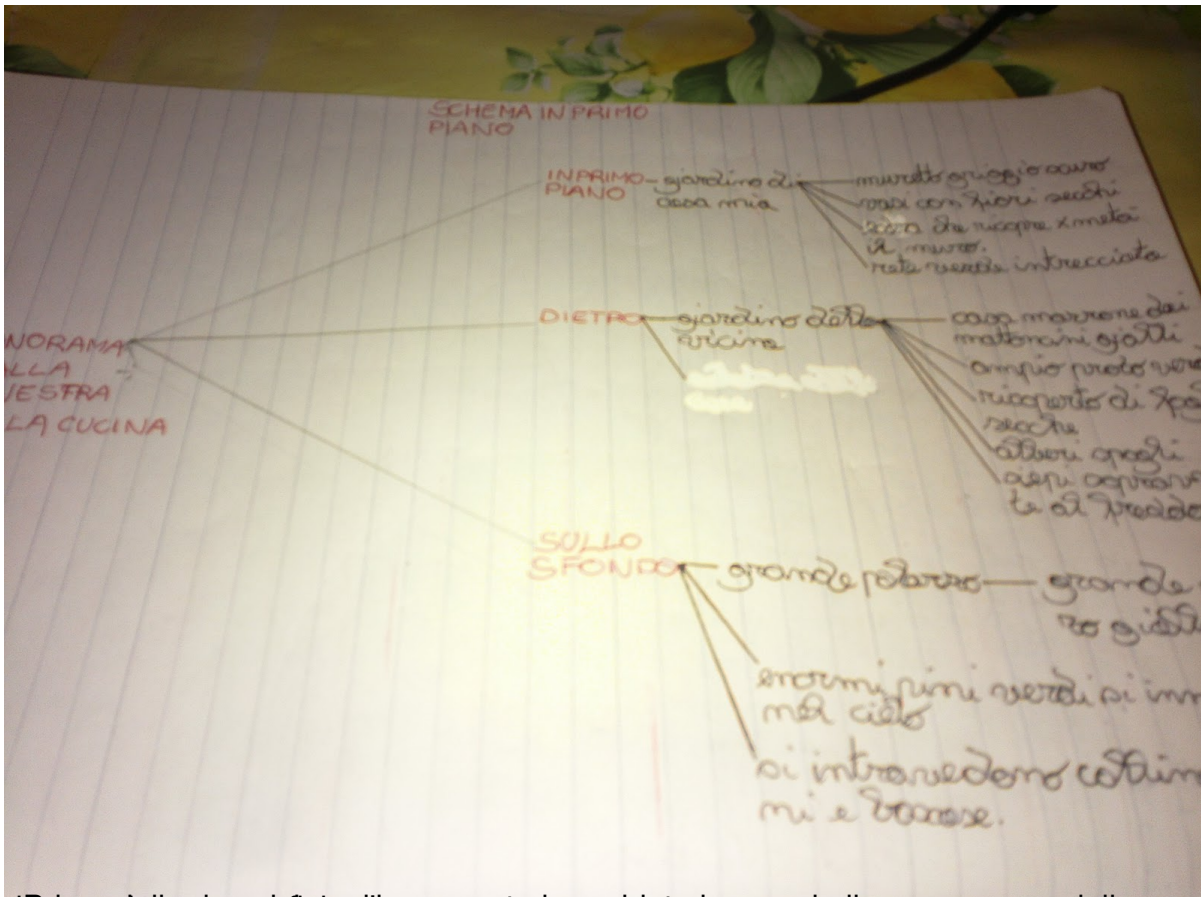 SCHEMA IN PRIMO
PIANO
IN PRIMO
PIANO
giardino di
casa mia
muretto grigio scuro
vasi con fiori secchi
che ricopre x metà
il muro.
rete verde intrecciata
NORAMA
LLA
NESTRA
LA CUCINA
DIETRO
giardino delle
vicine
casa marrone dai
mattoncini gialli
ampio prato ver
ricoperto di
secche
alberi spogli
siepi soprav
te al freddo
SULLO
SFONDO
grande palazzo
grande
ro giall
enormi pini verdi si inn
nel cielo
si intravedono collin
mi e boscose.